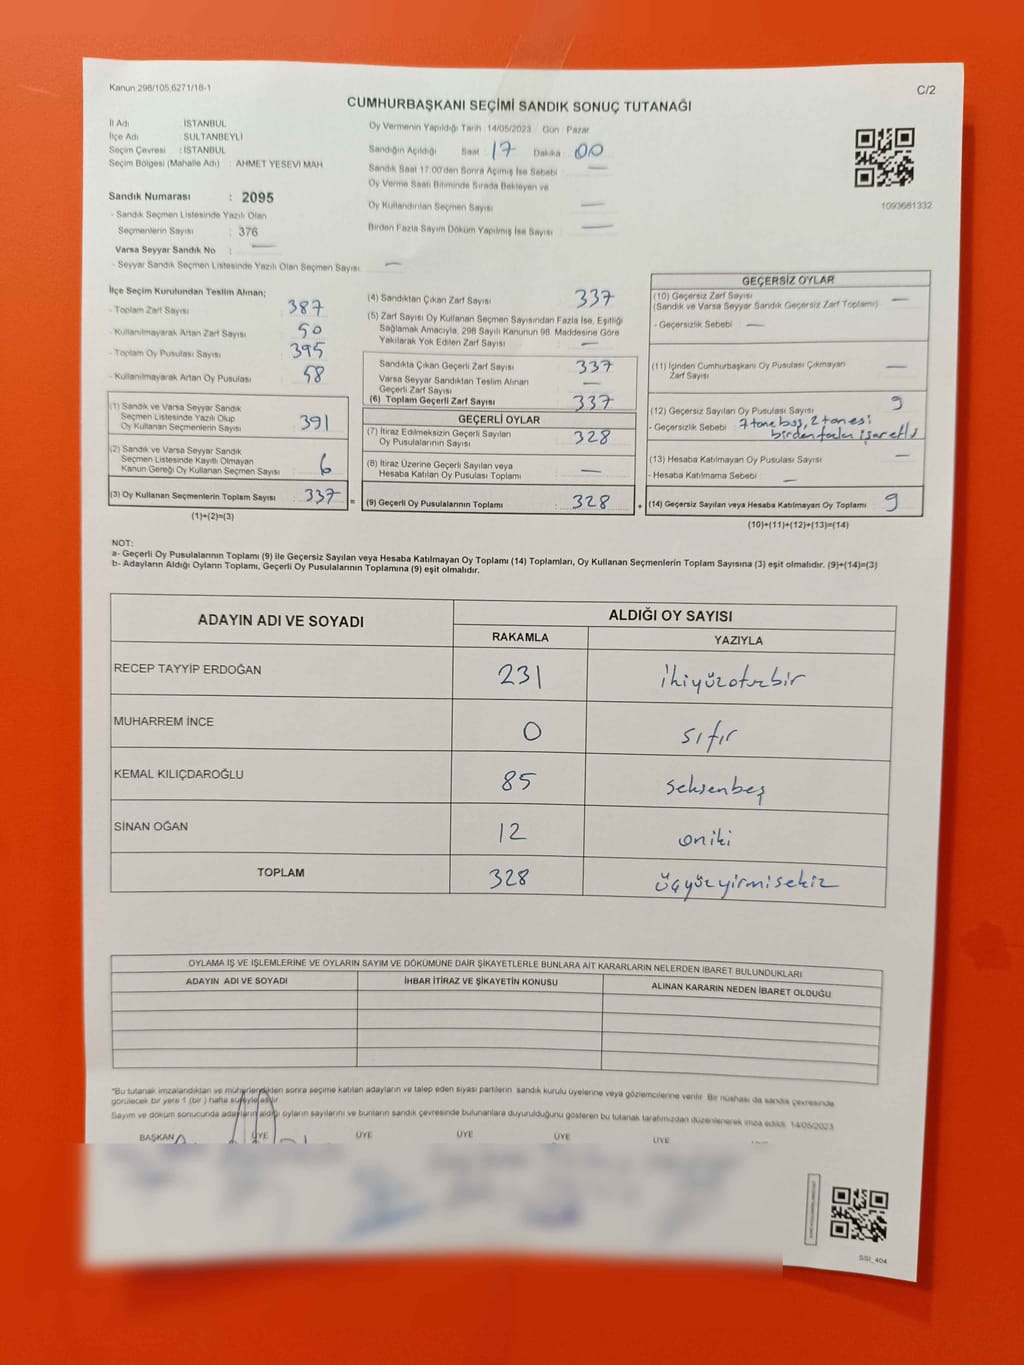 Kanun 298/105,6271/18-1
C/2
CUMHURBAŞKANI SEÇİMİ SANDIK SONUÇ TUTANAĞI
İl Adı İSTANBUL
İlçe Adı SULTANBEYLİ
Seçim Çevresi : İSTANBUL
Seçim Bölgesi (Mahalle Adı) : AHMET YESEVİ MAH
Sandık Numarası : 2095
- Sandık Seçmen Listesinde Yazılı Olan
Seçmenlerin Sayısı : 376
Varsa Seyyar Sandık No : —
- Seyyar Sandık Seçmen Listesinde Yazılı Olan Seçmen Sayısı —
Oy Vermenin Yapıldığı Tarih : 14/05/2023 / Gün : Pazar
Sandığın Açıldığı Saat 17 Dakika 00
Sandık Saat 17:00'den Sonra Açılmış İse Sebebi —
Oy Verme Saati Bitiminde Sırada Bekleyen ve
Oy Kullandırılan Seçmen Sayısı —
Birden Fazla Sayım Döküm Yapılmış İse Sayısı —
1093681332
İlçe Seçim Kurulundan Teslim Alınan;
- Toplam Zarf Sayısı 387
- Kullanılmayarak Artan Zarf Sayısı 50
- Toplam Oy Pusulası Sayısı 395
- Kullanılmayarak Artan Oy Pusulası 58
(1) Sandık ve Varsa Seyyar Sandık
Seçmen Listesinde Yazılı Olup
Oy Kullanan Seçmenlerin Sayısı 391
(2) Sandık ve Varsa Seyyar Sandık
Seçmen Listesinde Kayıtlı Olmayan
Kanun Gereği Oy Kullanan Seçmen Sayısı 6
(3) Oy Kullanan Seçmenlerin Toplam Sayısı 337 =
(1)+(2)=(3)
(4) Sandıktan Çıkan Zarf Sayısı 337
(5) Zarf Sayısı Oy Kullanan Seçmen Sayısından Fazla İse, Eşitliği
Sağlamak Amacıyla, 298 Sayılı Kanunun 98. Maddesine Göre
Yakılarak Yok Edilen Zarf Sayısı —
Sandıkta Çıkan Geçerli Zarf Sayısı 337
Varsa Seyyar Sandıktan Teslim Alınan
Geçerli Zarf Sayısı —
(6) Toplam Geçerli Zarf Sayısı 337
GEÇERLİ OYLAR
(7) İtiraz Edilmeksizin Geçerli Sayılan
Oy Pusulalarının Sayısı 328
(8) İtiraz Üzerine Geçerli Sayılan veya
Hesaba Katılan Oy Pusulası Toplamı —
(9) Geçerli Oy Pusulalarının Toplamı : 328 +
GEÇERSİZ OYLAR
(10) Geçersiz Zarf Sayısı —
(Sandık ve Varsa Seyyar Sandık Geçersiz Zarf Toplamı)
- Geçersizlik Sebebi —
(11) İçinden Cumhurbaşkanı Oy Pusulası Çıkmayan
Zarf Sayısı —
(12) Geçersiz Sayılan Oy Pusulası Sayısı 9
- Geçersizlik Sebebi 7 tane boş, 2 tanesi
birden fazla işaretli
(13) Hesaba Katılmayan Oy Pusulası Sayısı —
- Hesaba Katılmama Sebebi —
(14) Geçersiz Sayılan veya Hesaba Katılmayan Oy Toplamı 9
(10)+(11)+(12)+(13)=(14)
NOT:
a- Geçerli Oy Pusulalarının Toplamı (9) ile Geçersiz Sayılan veya Hesaba Katılmayan Oy Toplamı (14) Toplamları, Oy Kullanan Seçmenlerin Toplam Sayısına (3) eşit olmalıdır. (9)+(14)=(3)
b- Adayların Aldığı Oyların Toplamı, Geçerli Oy Pusulalarının Toplamına (9) eşit olmalıdır.
ADAYIN ADI VE SOYADI
ALDIĞI OY SAYISI
RAKAMLA YAZIYLA
RECEP TAYYİP ERDOĞAN 231 ikiyüzotuzbir
MUHARREM İNCE 0 sıfır
KEMAL KILIÇDAROĞLU 85 seksenbeş
SİNAN OĞAN 12 oniki
TOPLAM 328 üçyüzyirmisekiz
OYLAMA İŞ VE İŞLEMLERİNE VE OYLARIN SAYIM VE DÖKÜMÜNE DAİR ŞİKAYETLERLE BUNLARA AİT KARARLARIN NELERDEN İBARET BULUNDUKLARI
ADAYIN ADI VE SOYADI İHBAR İTİRAZ VE ŞİKAYETİN KONUSU ALINAN KARARIN NEDEN İBARET OLDUĞU
*Bu tutanak imzalandıktan ve mühürlendikten sonra seçime katılan adayların ve talep eden siyasi partilerin sandık kurulu üyelerine veya gözlemcilerine verilir. Bir nüshası da sandık çevresinde
görülecek bir yere 1 (bir) hafta süreyle asılır
Sayım ve döküm sonucunda adayların aldığı oyların sayılarını ve bunların sandık çevresinde bulunanlara duyurulduğunu gösteren bu tutanak tarafımızdan düzenlenerek imza edildi. 14/05/2023
BAŞKAN ÜYE ÜYE ÜYE ÜYE ÜYE
SSI_404